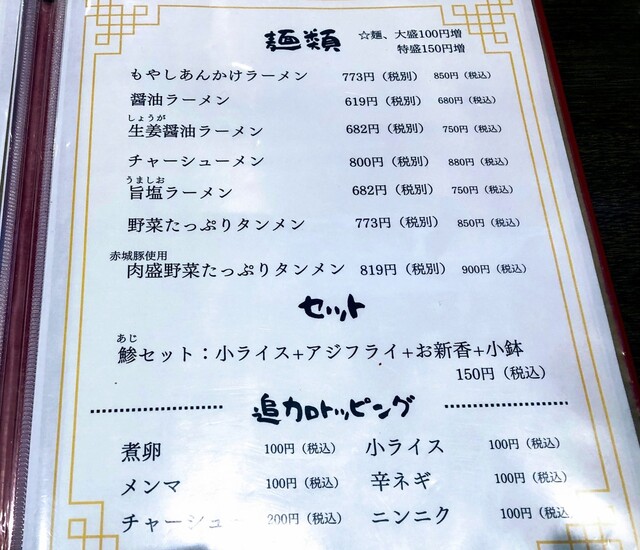 麺類 ☆麺、大盛100円増
特盛150円増
もやしあんかけラーメン 773円（税別） 850円（税込）
醤油ラーメン 619円（税別） 680円（税込）
しょうが
生姜醤油ラーメン 682円（税別） 750円（税込）
チャーシューメン 800円（税別） 880円（税込）
うましお
旨塩ラーメン 682円（税別） 750円（税込）
野菜たっぷりタンメン 773円（税別） 850円（税込）
赤城豚使用
肉盛野菜たっぷりタンメン 819円（税別） 900円（税込）
セット
あじ
鯵セット：小ライス+アジフライ+お新香+小鉢
150円（税込）
追加トッピング
煮卵 100円（税込） 小ライス 100円（税込）
メンマ 100円（税込） 辛ネギ 100円（税込）
チャーシュー 200円（税込） ニンニク 100円（税込